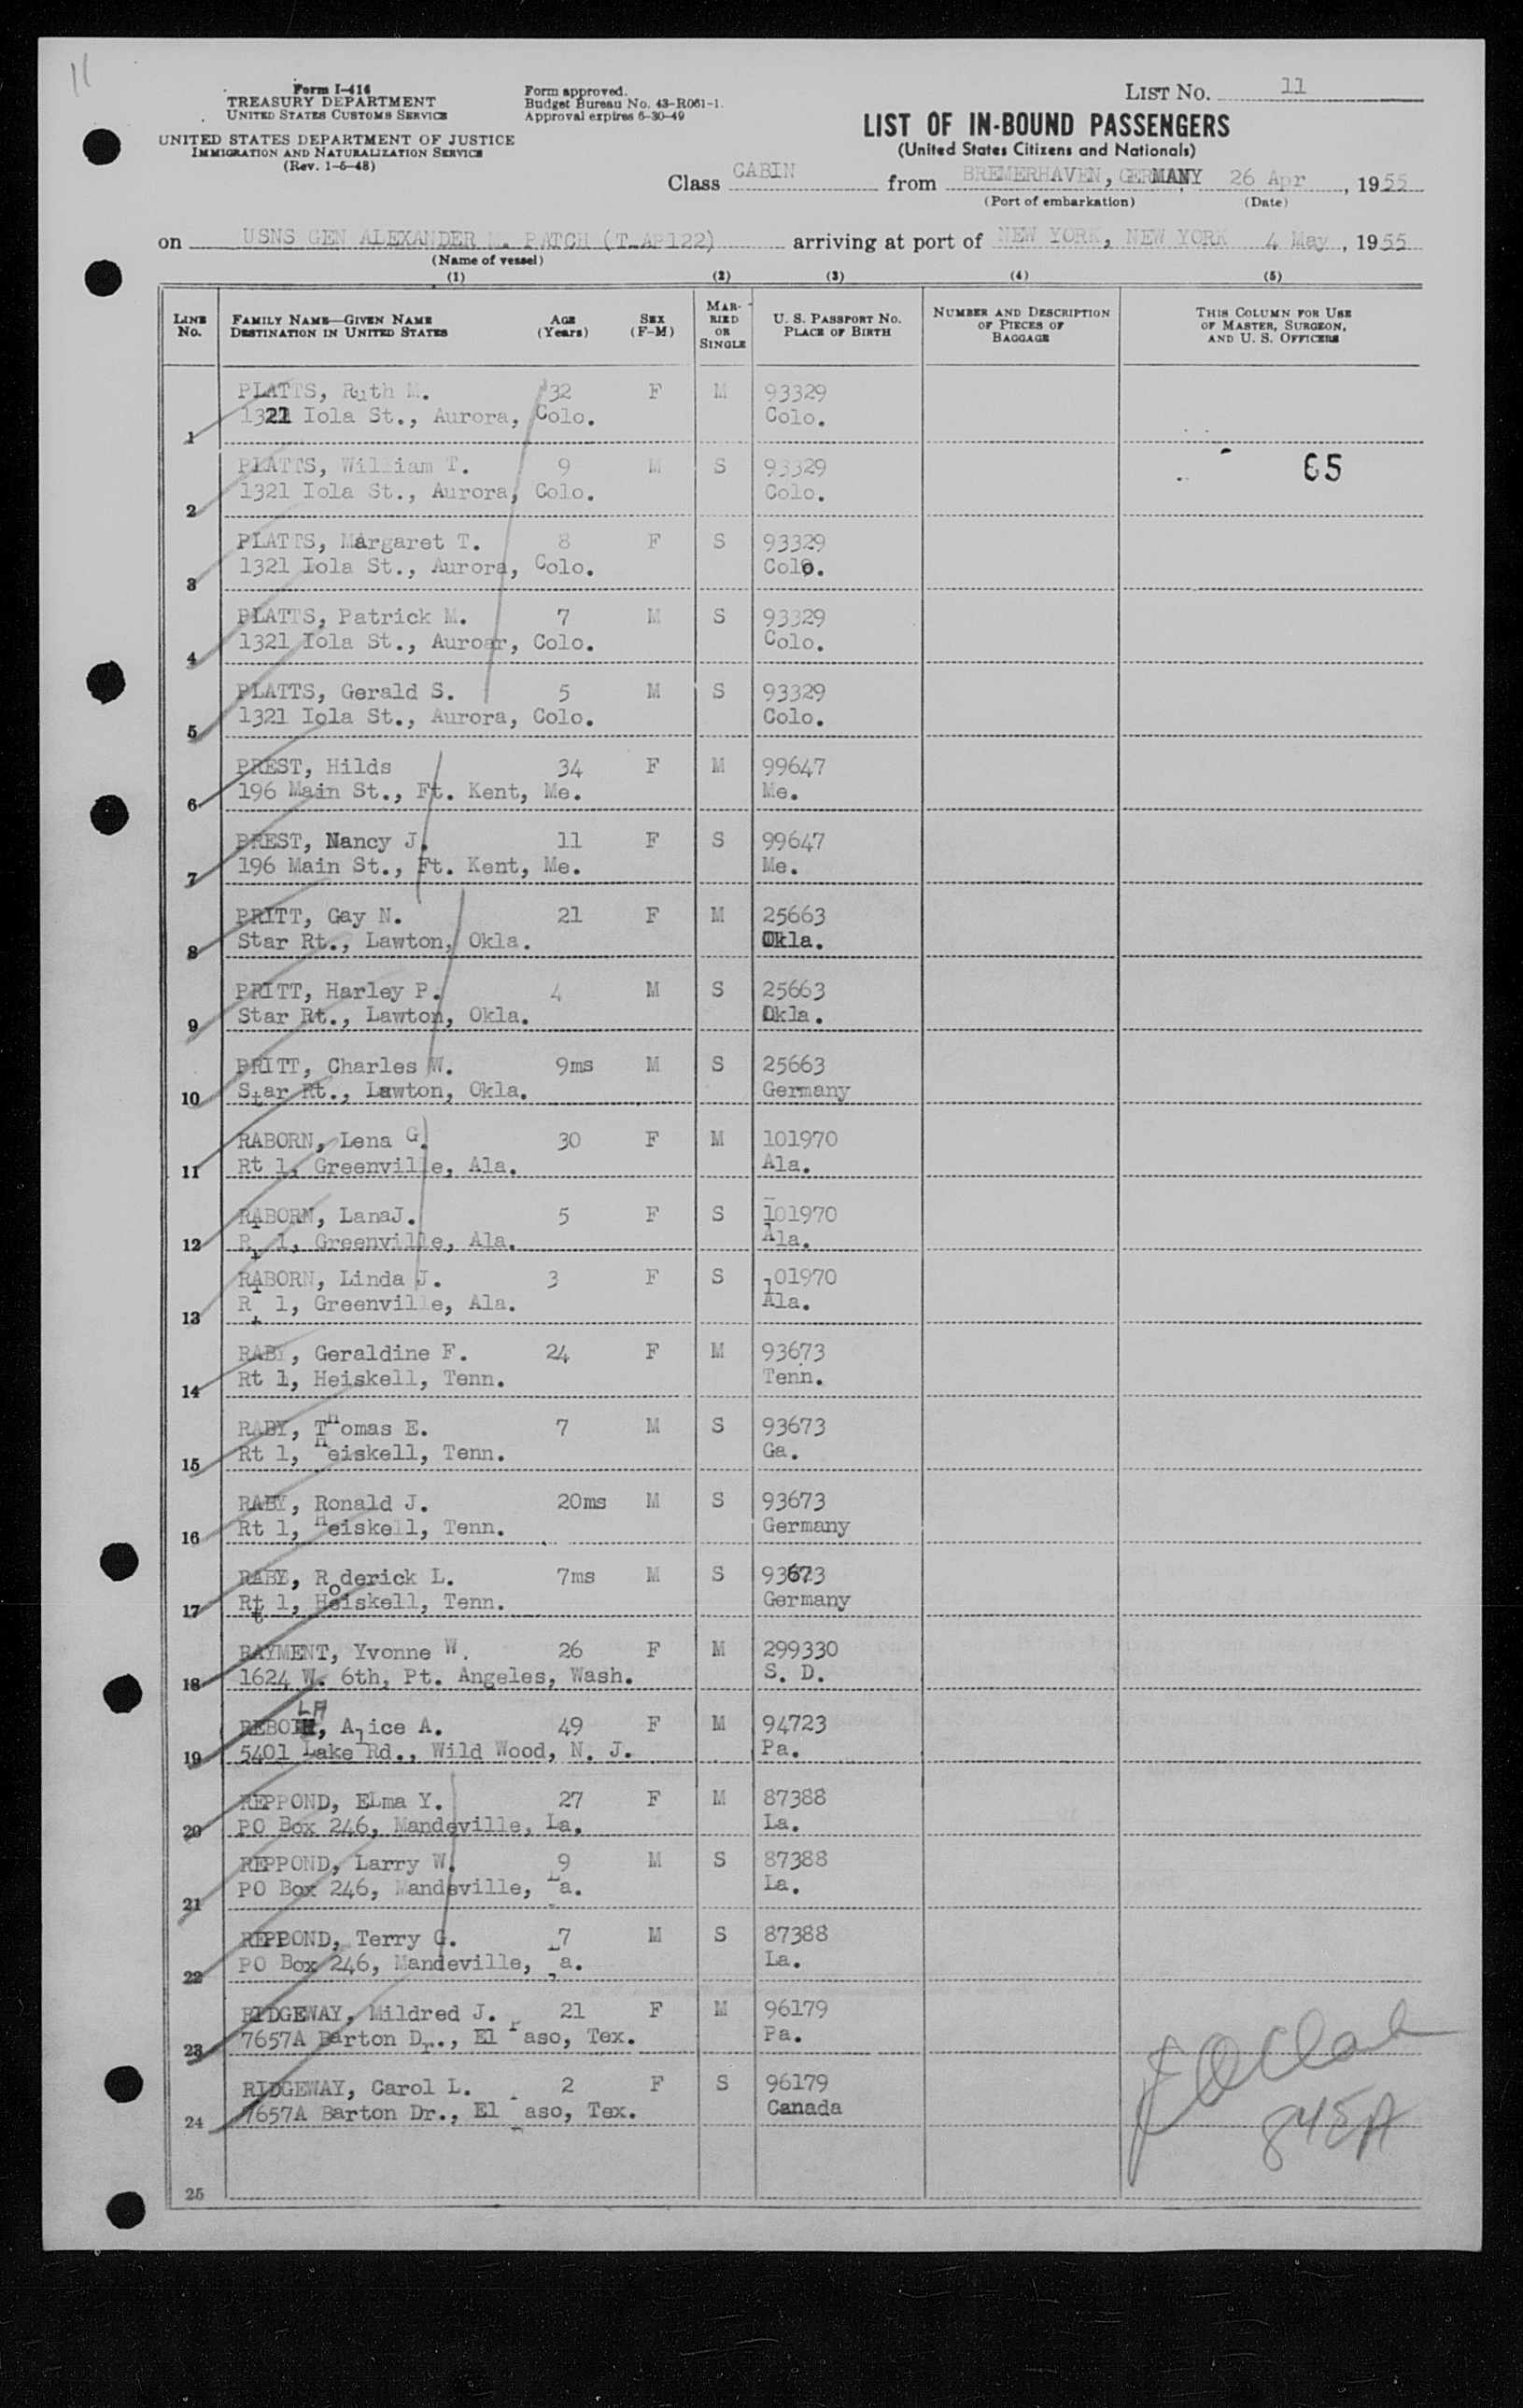 11
Form I-416
TREASURY DEPARTMENT
UNITED STATES CUSTOMS SERVICE
UNITED STATES DEPARTMENT OF JUSTICE
IMMIGRATION AND NATURALIZATION SERVICE
(Rev. 1-5-48)
Form approved.
Budget Bureau No. 43-R061-1.
Approval expires 6-30-49
LIST No. 11
LIST OF IN-BOUND PASSENGERS
(United States Citizens and Nationals)
Class CABIN from BREMERHAVEN, GERMANY 26 Apr, 1955
(Port of embarkation) (Date)
on USNS GEN ALEXANDER M. PATCH (T-AP122) arriving at port of NEW YORK, NEW YORK 4 May, 1955
(Name of vessel)
(1) (2) (3) (4) (5)
LINE No. FAMILY NAME—GIVEN NAME DESTINATION IN UNITED STATES AGE (Years) SEX (F-M) MARRIED OR SINGLE U. S. PASSPORT NO. PLACE OF BIRTH NUMBER AND DESCRIPTION OF PIECES OF BAGGAGE THIS COLUMN FOR USE OF MASTER, SURGEON, AND U. S. OFFICERS
PLATTS, Ruth M. 32 F M 93329
1 1321 Iola St., Aurora, Colo. Colo.
PLATTS, William T. 9 M S 93329 65
2 1321 Iola St., Aurora, Colo. Colo.
PLATTS, Margaret T. 8 F S 93329
3 1321 Iola St., Aurora, Colo. Colo.
PLATTS, Patrick M. 7 M S 93329
4 1321 Iola St., Auroar, Colo. Colo.
PLATTS, Gerald S. 5 M S 93329
5 1321 Iola St., Aurora, Colo. Colo.
PREST, Hilds 34 F M 99647
6 196 Main St., Ft. Kent, Me. Me.
PREST, Nancy J. 11 F S 99647
7 196 Main St., Ft. Kent, Me. Me.
PRITT, Gay N. 21 F M 25663
8 Star Rt., Lawton, Okla. Okla.
PRITT, Harley P. 4 M S 25663
9 Star Rt., Lawton, Okla. Okla.
PRITT, Charles W. 9ms M S 25663
10 Star Rt., Lawton, Okla. Germany
RABORN, Lena G. 30 F M 101970
11 Rt 1, Greenville, Ala. Ala.
RABORN, LanaJ. 5 F S 101970
12 Rt 1, Greenville, Ala. Ala.
RABORN, Linda J. 3 F S 101970
13 Rt 1, Greenville, Ala. Ala.
RABY, Geraldine F. 24 F M 93673
14 Rt 1, Heiskell, Tenn. Tenn.
RABY, Thomas E. 7 M S 93673
15 Rt 1, Heiskell, Tenn. Ga.
RABY, Ronald J. 20ms M S 93673
16 Rt 1, Heiskell, Tenn. Germany
RABY, Roderick L. 7ms M S 93673
17 Rt 1, Heiskell, Tenn. Germany
RAYMENT, Yvonne W. 26 F M 299330
18 1624 W. 6th, Pt. Angeles, Wash. S. D.
Alice A. 49 F M 94723
19 5401 Lake Rd., Wild Wood, N. J. Pa.
REPPOND, ELma Y. 27 F M 87388
20 PO Box 246, Mandeville, La. La.
REPPOND, Larry W. 9 M S 87388
21 PO Box 246, Mandeville, La. La.
REPPOND, Terry G. 7 M S 87388
22 PO Box 246, Mandeville, La. La.
RIDGEWAY, Mildred J. 21 F M 96179
23 7657A Barton Dr., El Paso, Tex. Pa.
RIDGEWAY, Carol L. 2 F S 96179
24 7657A Barton Dr., El Paso, Tex. Canada
25